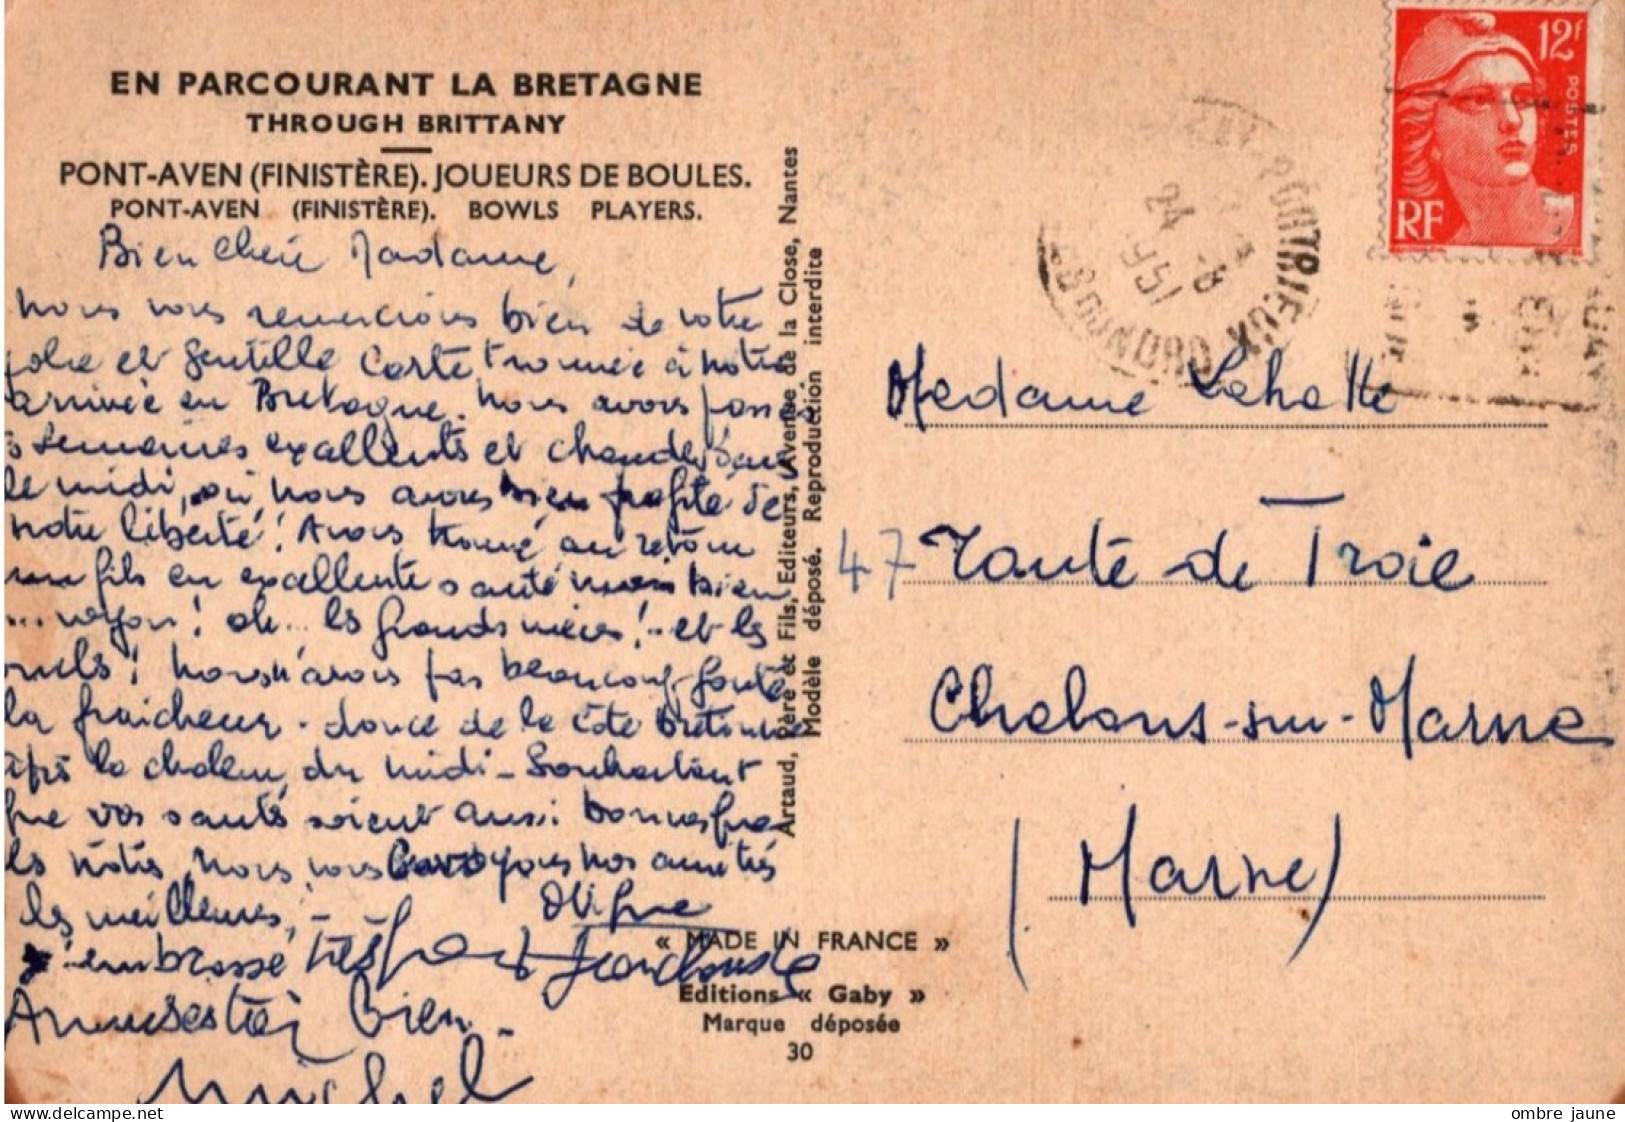 EN PARCOURANT LA BRETAGNE
THROUGH BRITTANY
PONT-AVEN (FINISTÈRE). JOUEURS DE BOULES.
PONT-AVEN (FINISTÈRE). BOWLS PLAYERS.
Bien chère Madame,
nous vous remercions bien de votre
jolie et gentille carte trouvée à notre
arrivée en Bretagne. Nous avons passé
semaines excellentes et chaudes dans
le midi, où nous avons bien profité de
notre liberté! Avons trouvé au retour
mon fils en excellente santé mais bien
... voyou! oh... les grands-mères! - et les
la fraîcheur - douce de la côte Bretonne
après la chaleur du midi - Souhaitant
que vos santés soient aussi bonnes que
les nôtres, nous vous envoyons nos amitiés
les meilleures, -
J'embrasse très fort
Amuses toi bien.
Michel
Artaud, Père et Fils, Editeurs, Avenue de la Close, Nantes
Modèle déposé. Reproduction interdite
« MADE IN FRANCE »
Editions « Gaby »
Marque déposée
30
12f
POSTES
RF
QUAI-PORTRIEUX
24
-8
1951
CÔTES-DU-NORD
Madame Lahatte
47 Route de Troie
Chalons-sur-Marne
(Marne)
delcampe.net
ombre jaune